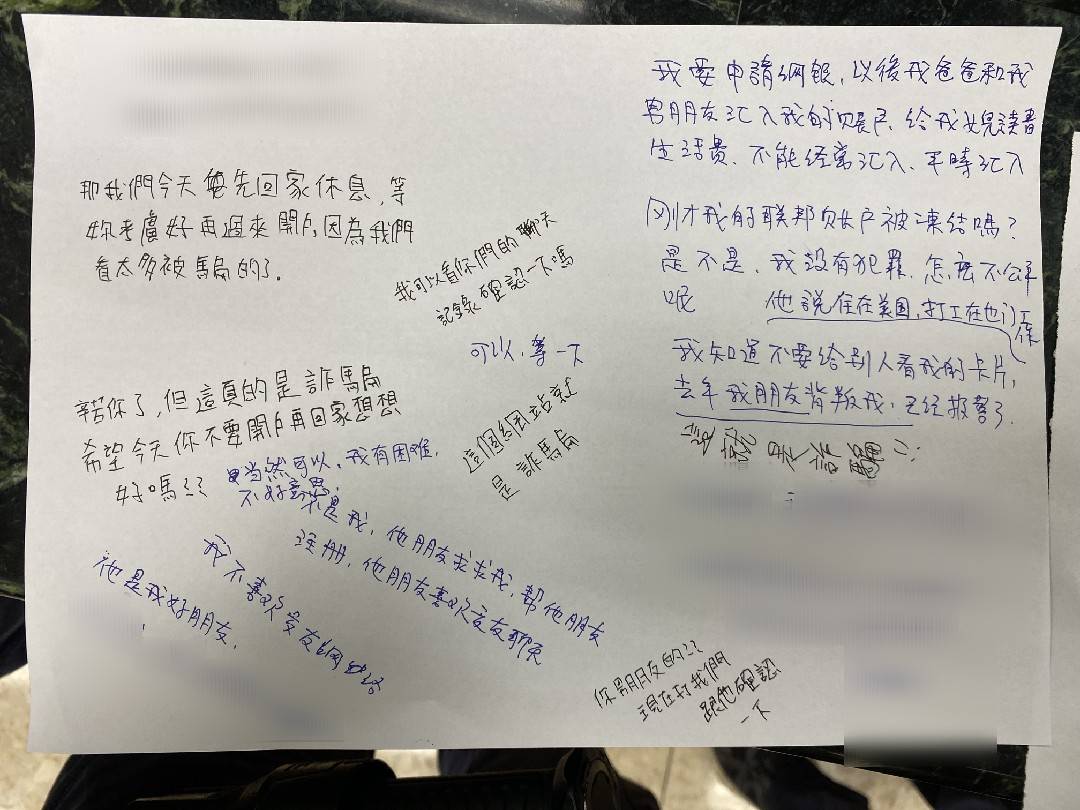 我要申請網銀，以後我爸爸和我
男朋友汇入我的账户，給我女兒讀書
生活費、不能經常汇入、平時汇入
刚才我的联邦账户被凍結嗎？
是不是，我没有犯罪，怎麼不公平
呢
他說住在美国，打工在他们
我知道不要给别人看我的卡片，
去年我朋友背叛我，已经报警了．
這就是詐騙
那我們今天先回家休息，等
妳考慮好再過來開戶，因為我們
看太多被騙的了．
我可以看你們的聊天
記錄確認一下嗎
可以，等一下
辛苦你了，但這真的是詐騙
希望今天你不要開戶再回家想想
好嗎??
當然可以，我有困难．
不好意思，不是我，他朋友求求我，幫他朋友
注册，他朋友喜欢交友聊天
這個網站就
是詐騙
我不喜欢交友網站
他是我好朋友．
你男朋友的??
現在打我們
跟他確認
一下